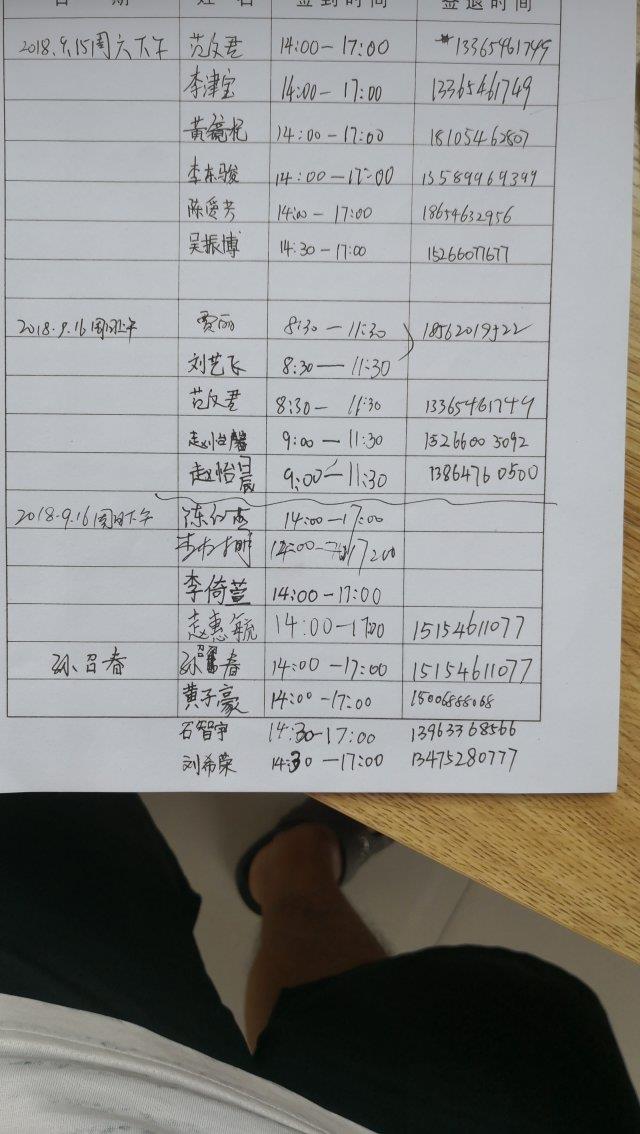 日 期 姓 名 签到时间 签退时间
2018.9.15周六下午 范文君 14:00-17:00 13365461749
李津宝 14:00-17:00 13365461749
黄镜杞 14:00-17:00 18105462807
李东骏 14:00-17:00 13589969399
陈爱芳 14:00-17:00 18654632956
吴振博 14:30-17:00 15266077677
2018.9.16周日上午 贾丽 8:30-11:30 18562019522
刘艺飞 8:30-11:30
范文君 8:30-11:30 13365461749
赵怡馨 9:00-11:30 15266003092
赵怡晨 9:00-11:30 13864760500
2018.9.16周日下午 陈 14:00-17:00
14:00-17:00
李倚萱 14:00-17:00
赵惠毓 14:00-17:00 15154611077
孙召春 孙召春 14:00-17:00 15154611077
黄子豪 14:00-17:00 15006888068
石智宇 14:30-17:00 13963368566
刘希荣 14:30-17:00 13475280777